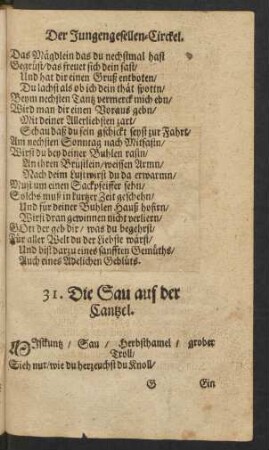 Der Jungengesellen-Circkel.
Das Mägdlein das du nechstmal hast
Begrüst/ das frewet sich dein fast/
Und hat dir einen Gruß entboten/
Du lachst als ob ich dein thät spotn/
Beym nechsten Tantz vermerck mich ebn/
Wird man dir einen Voraus gebn/
Mit deiner Allerliebsten zart/
Schau daß du sein gschickt seyst zur Fahrt/
Am nechsten Sonntag nach Mitfastn/
Wirst du bey deiner Buhlen rastn/
In ihren Brüstlein/ weissen Armn/
Nach deim Lust wirst du da erwarmn/
Must um einen Sackpfeiffer sehn/
Solchs muß in kurtzer Zeit geschehn/
Und für deiner Buhlen Hauß hofirn/
Wirst dran gewinnen nicht verliern/
GOtt der geb dir/ was du begehrst/
Für aller Welt du der Liebste wärst/
Und bist darzu eines sanfften Gemüths/
Auch eines Adelichen Geblüts.
31. Die Sau auf der
Cantzel.
/ Sau / Herbsthamel / grober
Troll/
Sieh nur/ wie du herzeuchst du Knoll/
G Ein